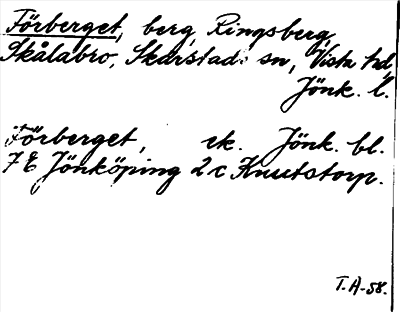 Förberget, berg, Ringsberg,
Skålabro, Skärstads sn, Vista hd,
Jönk. l.
Förberget, ek. Jönk. bl.
7 E Jönköping 2 c Knutstorp.
T. A-58.